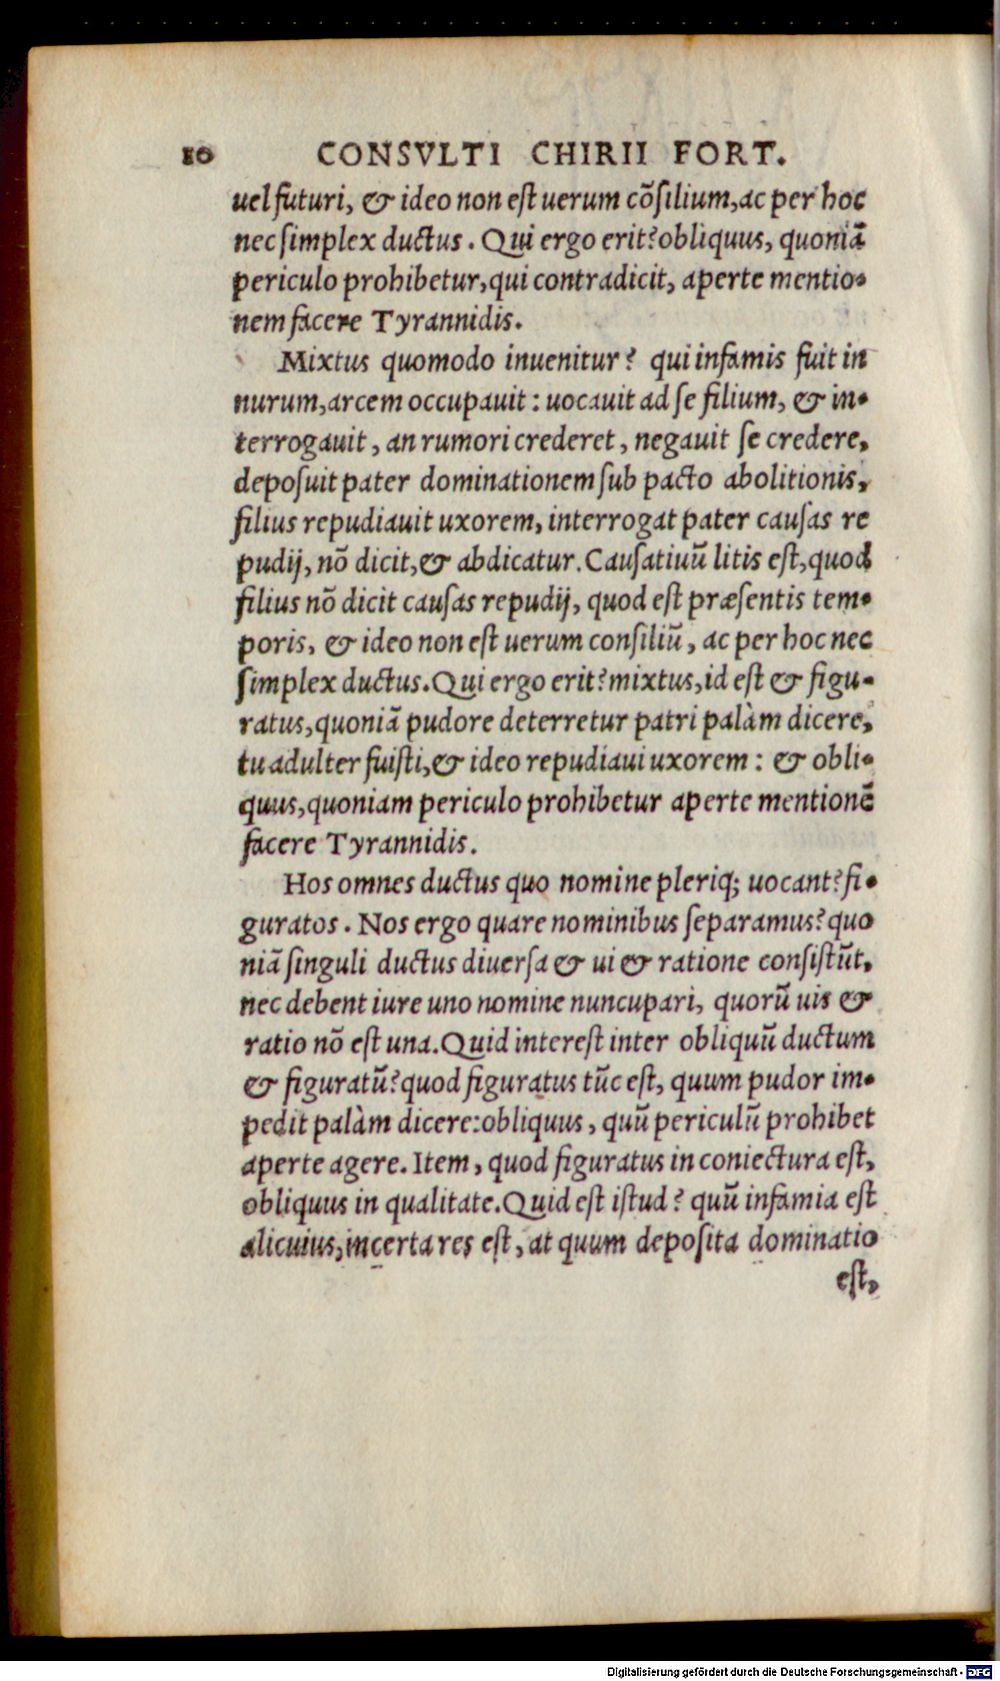 10 CONSVLTI CHIRII FORT.
uel futuri, & ideo non est uerum cõsilium, ac per hoc
nec simplex ductus. Qui ergo erit? obliquus, quoniã
periculo prohibetur, qui contradicit, aperte mentio-
nem facere Tyrannidis.
Mixtus quomodo inuenitur? qui infamis fuit in
nurum, arcem occupauit: uocauit ad se filium, & in-
terrogauit, an rumori crederet, negauit se credere,
deposuit pater dominationem sub pacto abolitionis,
filius repudiauit uxorem, interrogat pater causas re
pudij, nõ dicit, & abdicatur. Causatiuũ litis est, quod
filius nõ dicit causas repudij, quod est præsentis tem-
poris, & ideo non est uerum consiliũ, ac per hoc nec
simplex ductus. Qui ergo erit? mixtus, id est & figu-
ratus, quoniã pudore deterretur patri palàm dicere,
tu adulter fuisti, & ideo repudiaui uxorem: & obli-
quus, quoniam periculo prohibetur aperte mentionẽ
facere Tyrannidis.
Hos omnes ductus quo nomine pleriq; uocant? fi-
guratos. Nos ergo quare nominibus separamus? quo
niã singuli ductus diuersa & ui & ratione consistũt,
nec debent iure uno nomine nuncupari, quorũ uis &
ratio nõ est una. Quid interest inter obliquũ ductum
& figuratũ? quod figuratus tũc est, quum pudor im-
pedit palàm dicere: obliquus, quũ periculũ prohibet
aperte agere. Item, quod figuratus in coniectura est,
obliquus in qualitate. Quid est istud? quũ infamia est
alicuius, incerta res est, at quum deposita dominatio
est,
Digitalisierung gefördert durch die Deutsche Forschungsgemeinschaft - DFG